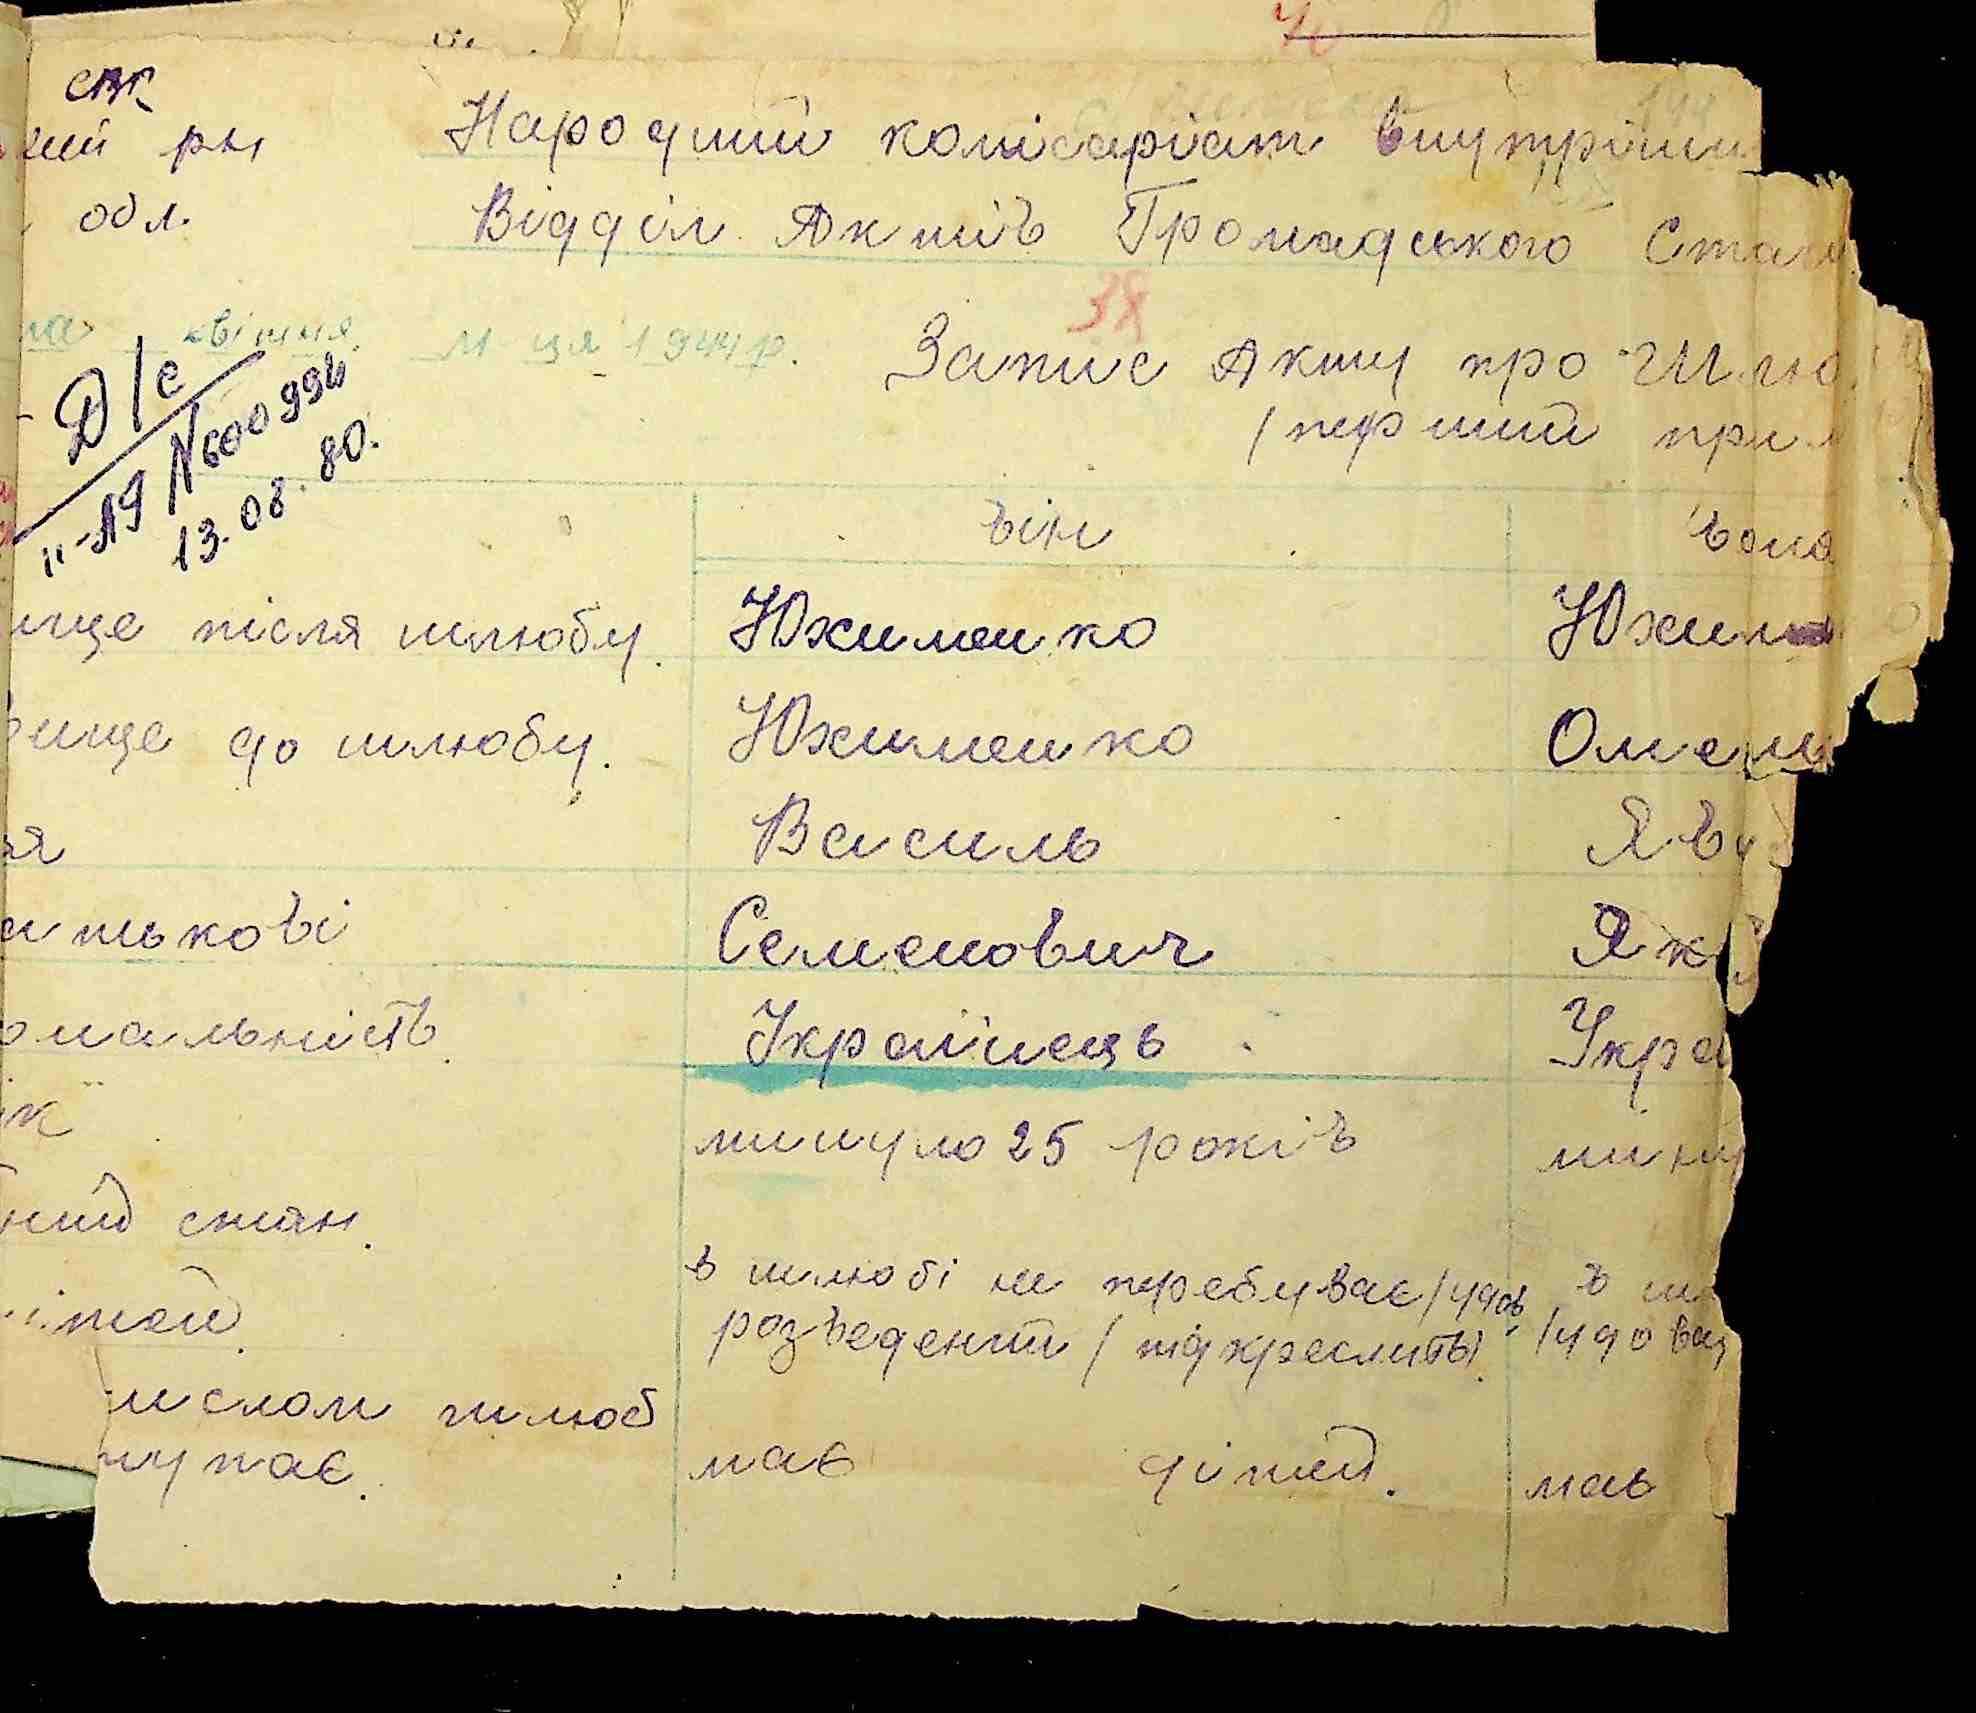 рн Народний комісаріат внутрішн
обл. Відділ Актів Громадського Стану
38
квітня м-ця 1944 р. Запис Акту про Шлю
/перший прим
Д/с
II-ЛЯ №600994
13.08.80.
він вона
ище після шлюбу. Юхименко Юхим
вище до шлюбу. Юхименко Омель
я Василь Явд
атькові Семенович Як
ональність. Українець Укра
ік минуло 25 років мину
ний стан.
в шлюбі не перебуває/удов, в шл
ітей. розведений/підкреслить/. /удовиц
ислом шлюб
тупає. має дітей. має